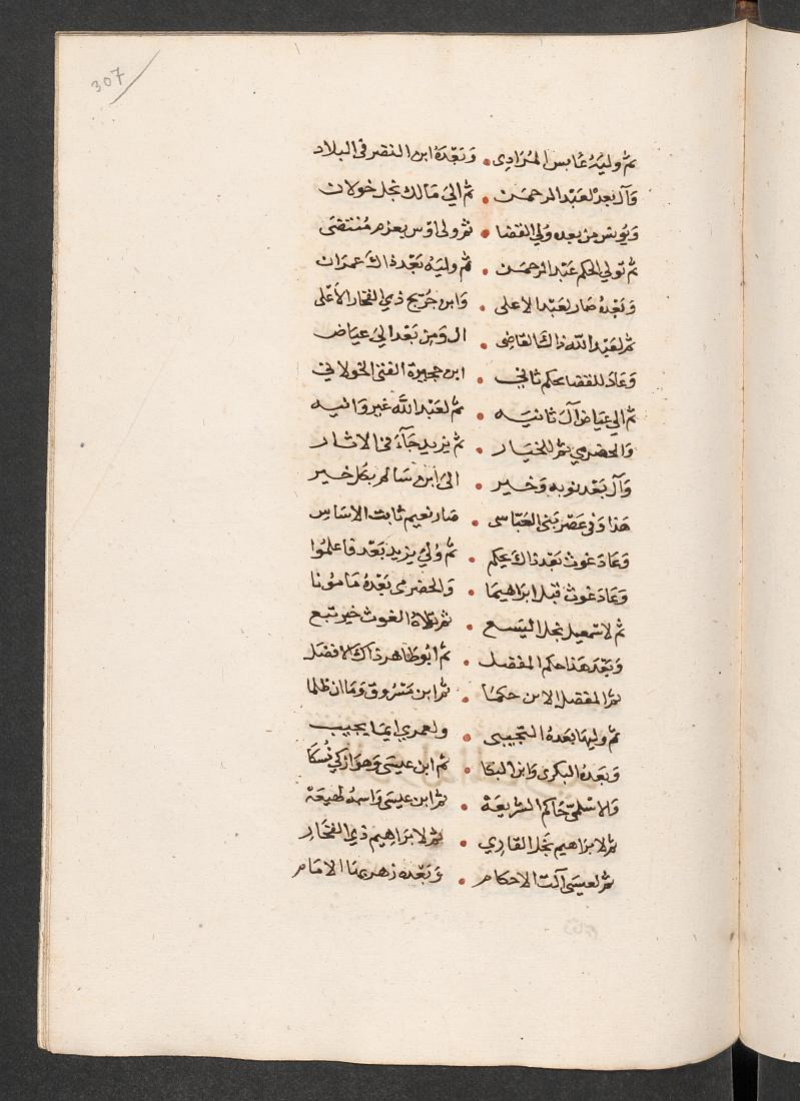 307
ثم وليه عابس المرادى • وبعده ابن النضر فى البلاد
وآل بعد لعبد الرحمن • ثم الى مالك نجل خولان
ويونس من بعده ولي القضا • ثم ولى اوس بعزم منتضى
ثم تولى الحكم عبد الرحمن • ثم وليه بعد ذاك عمران
وبعده صار لعبد الاعلى • وابن خريج ذي الفخار الاعلى
ثم لعبد الله ذاك القاضى • ال ومن بعد الى عياض
وعاد للقضا بحكم ثاني • ابن حجيرة الفتى الخولاني
ثم الى عياض آل ثانيه • ثم لعبد الله غير وانيه
والحضرمي ثم للخيار • ثم يزيد جآء فى الاثار
وآل بعد توبه وخير • الى ابن سالم بكل خير
هذا وفى عصر بنى العباسى • صار نعيم ثابت الاساس
وعاد غوث بعد ذاك يحكم • ثم ولي يزيد بعد فاعلموا
وعاد غوث قبل ابراهيما • والحضرمى بعده مامونا
ثم لاسمعيل نجل اليسع • ثم تلاه الغوث خير تبع
وبعد هذا حكم المفضل • ثم ابو طاهر ذاك الافضل
ثم المفضل الامن حكما • ثم ابن مسروق وما ان ظلما
ثم وليها بعده التجيبى • ولعمري ايما يجيب
وبعده البكرى وابن البكا • ثم ابن عيسى وهو ازكى نسكا
والاسلمى حاكم الشريعة • ثم ابن عيسى واسمه لهيعة
ثم لابراهيم نجل القاري • ثم لابراهيم ذي الفخار
ثم لعيسى آلت الاحكام • وبعده زهرينا الامام